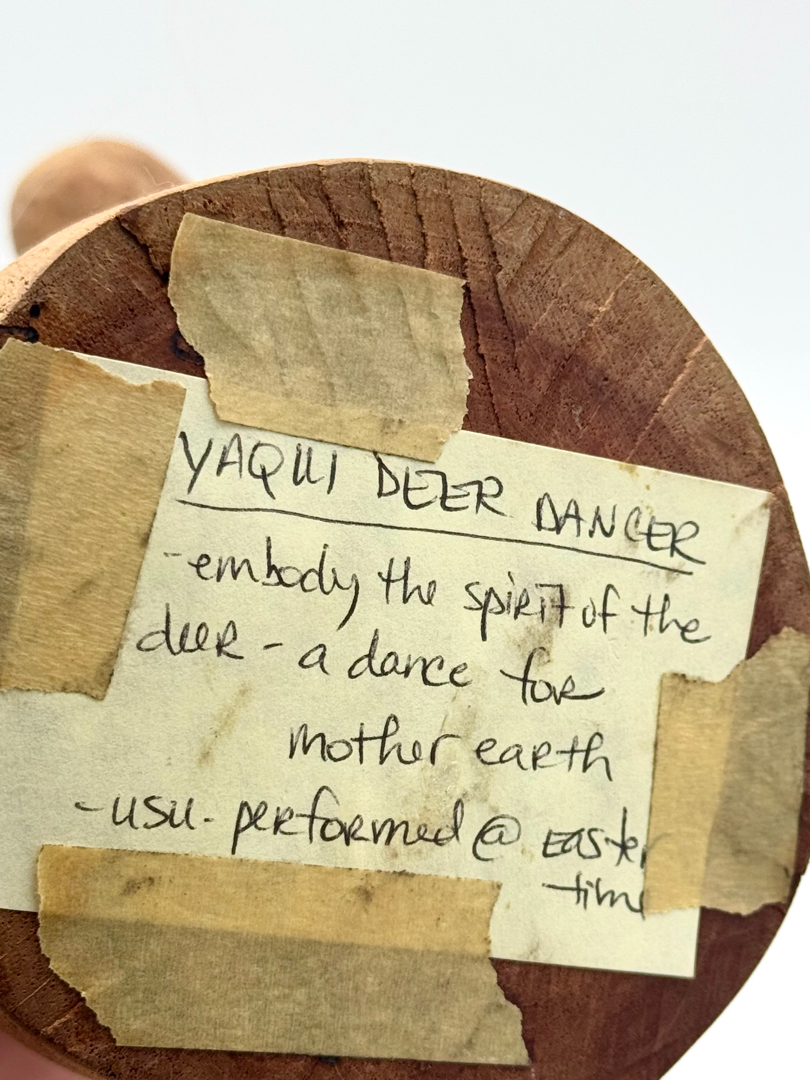 YAQUI DEER DANCER
-embody the spirit of the
deer - a dance for
mother earth
-usu. performed @ Easter
time